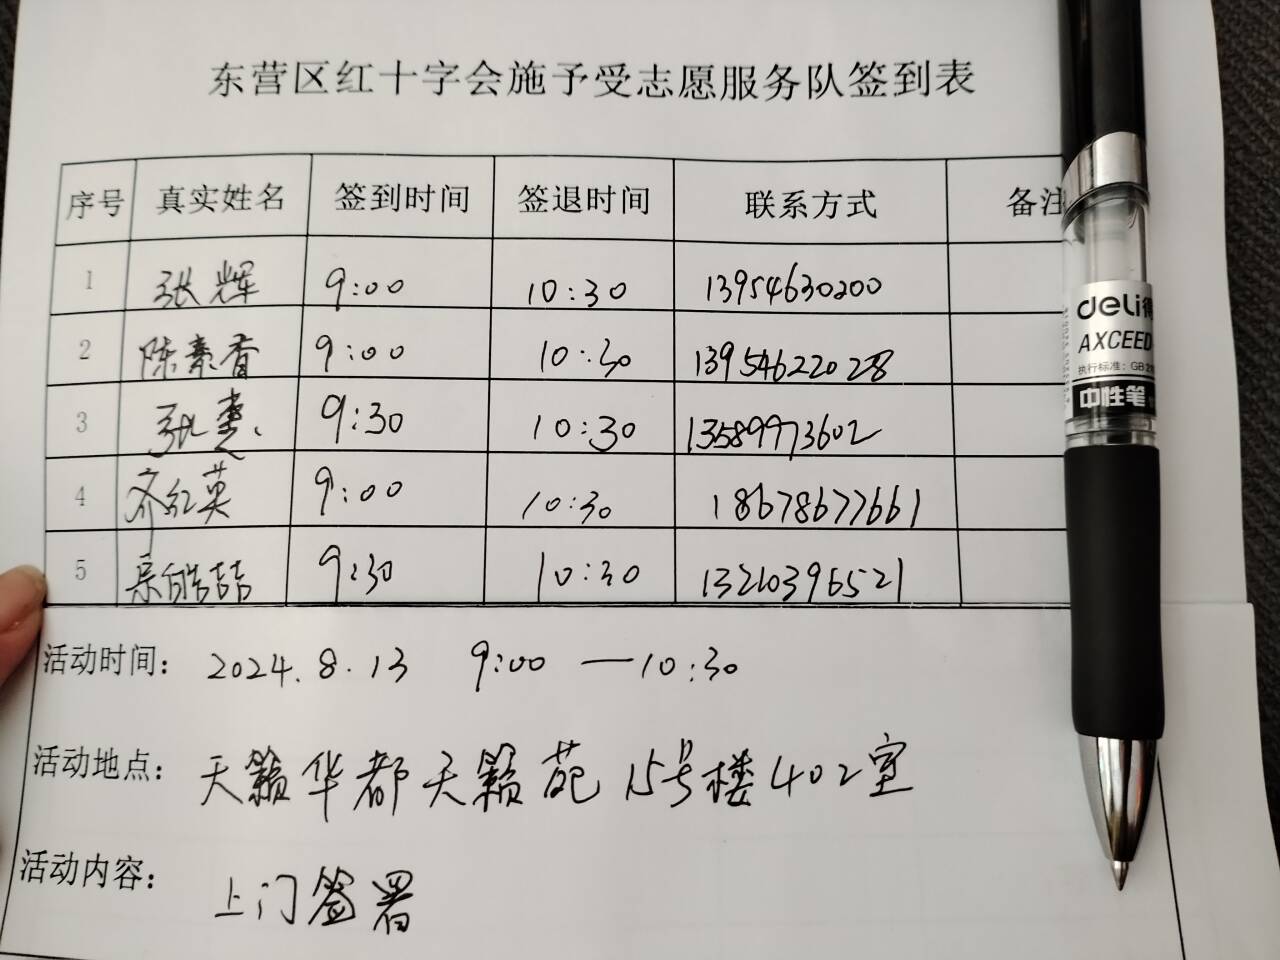 东营区红十字会施予受志愿服务队签到表
序号 真实姓名 签到时间 签退时间 联系方式 备注
1 张辉 9:00 10:30 13954630200
2 陈素香 9:00 10:30 13954622028
3 张 9:30 10:30 13589973602
4 齐红英 9:00 10:30 18678677661
5 9:30 10:30 13210396521
活动时间: 2024.8.13 9:00 — 10:30
活动地点: 天籁华都天籁苑15号楼402室
活动内容: 上门签署
deli得
AXCEED
执行标准: GB
中性笔